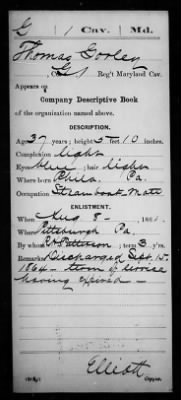 G | 1 | Cav. | Md.
Thomas Gorley
Co. G, 1 Reg't Maryland Cav.
Appears on
Company Descriptive Book
of the organization named above.
DESCRIPTION.
Age 37 years; height 5 feet 10 inches.
Complexion Light
Eyes Blue; hair Light
Where born Phila. Pa.
Occupation Steamboat Mate
ENLISTMENT.
When Aug 8-, 186
Where Pittsburgh Pa.
By whom Patterson; term 3 y'rs.
Remarks: Discharged Sept. 15.
1864 - term of service
having expired -
Elliott
Copyist.